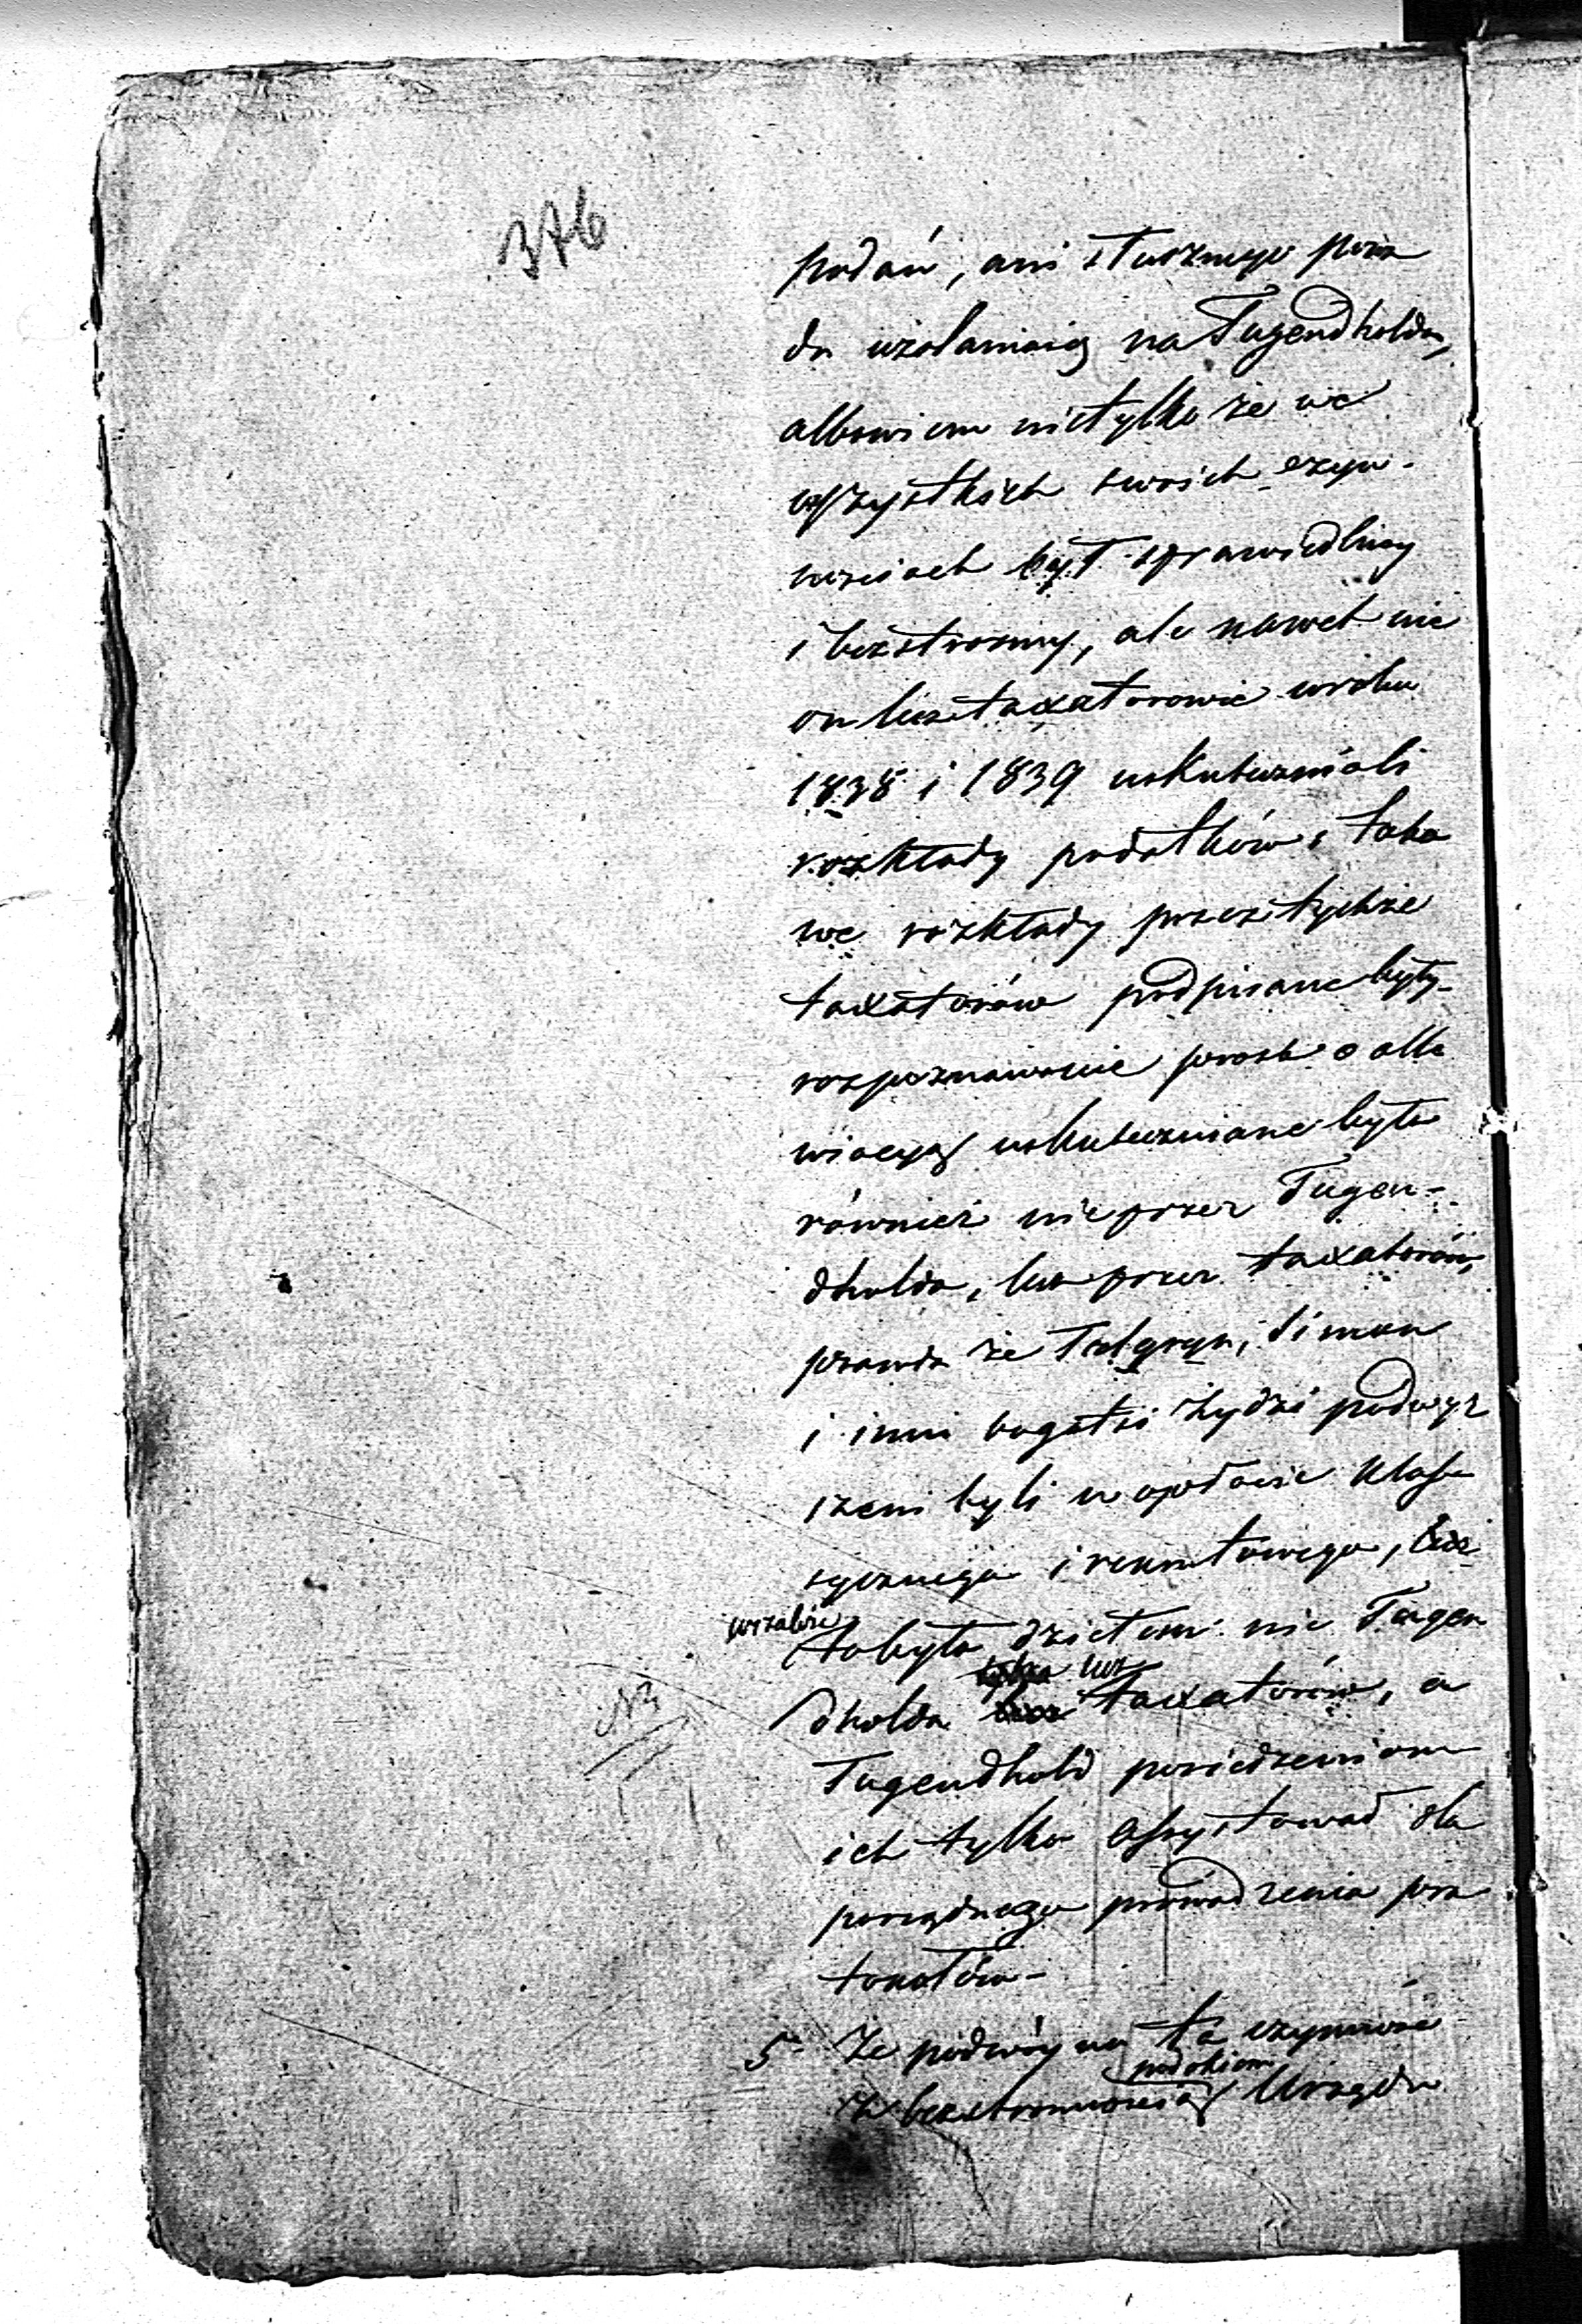 376
podań, ani słusznego powo
du użalania się na Tugendholda,
albowiem nietylko że we
wszystkich swoich czyn-
nościach był sprawiedliwy
i bezstronny, ale nawet nie
on lecz taxatorowie w roku
1838 i 1839 uskuteczniali
rozkłady podatków i tako
we rozkłady przez tychże
taxatorów podpisane były-
rozpoznawanie prośb o alle
wiacyą uskutecznione było
również nie przez Tugen-
dholda, lecz przez taxatorów,
prawda że Simon
i inni bogatsi żydzi podwyż
szeni byli w opłacie klassy
sycznego i rekrutowego, lecz
wszakże
to było dziełem nie Tugen
lecz
dholda taxatorów, a
Tugendhold posiedzeniom
ich tylko assystował dla
porządnego prowadzenia pro
tokołów-
5- Że podwójna ta czynność
pod okiem
z bezstronnością Urzędu